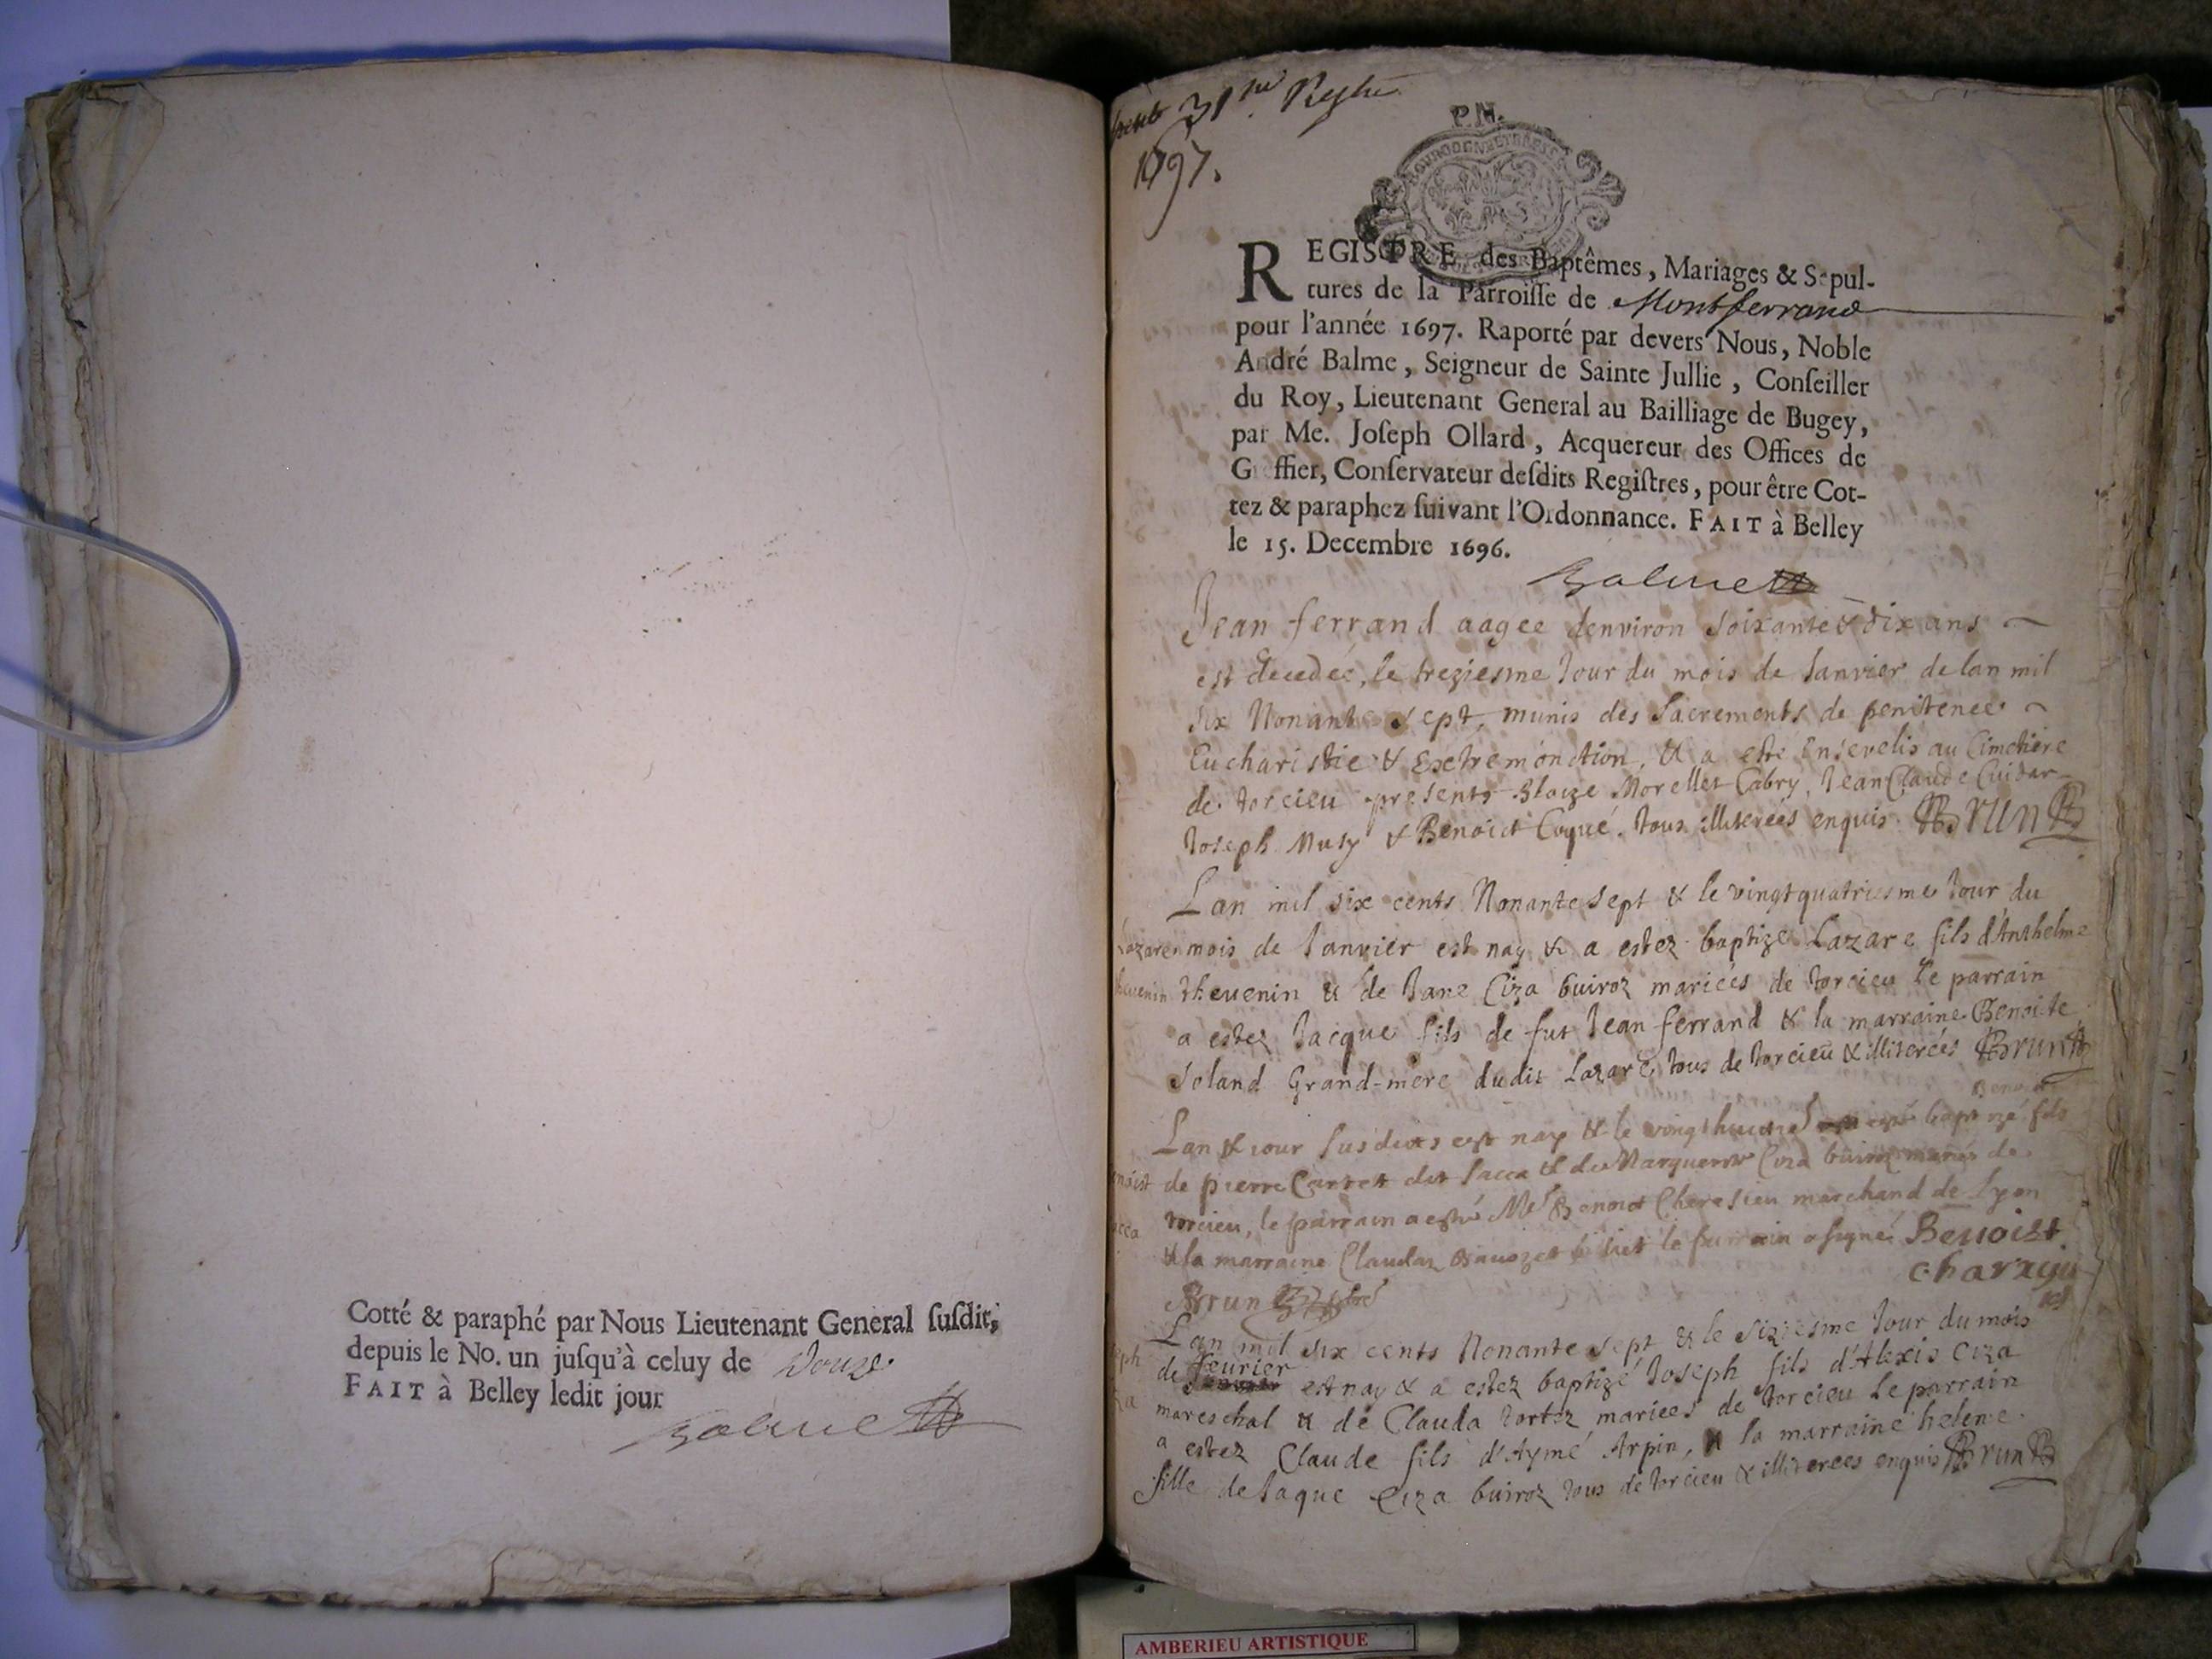 Cotté & paraphé par Nous Lieutenant General ſuſdit,
depuis le No. un juſqu'à celuy de Douze
FAIT à Belley ledit jour
Balme
1697.
P.N.
REGISTRE des Baptêmes, Mariages & Sepul-
tures de la Parroiſſe de Montferrand
pour l'année 1697. Raporté par devers Nous, Noble
André Balme, Seigneur de Sainte Jullie, Conſeiller
du Roy, Lieutenant General au Bailliage de Bugey,
par Me. Joſeph Ollard, Acquereur des Offices de
Greffier, Conſervateur deſdits Regiſtres, pour être Cot-
tez & paraphez ſuivant l'Ordonnance. FAIT à Belley
le 15. Decembre 1696.
Balme
Jean ferrand aagee denviron soixante & dix ans
est decedée, le treziesme Jour du mois de Janvier de lan mil
six Nonante sept, munis des Sacrements de penitence
Eucharistie & Extremonction, & a esté Ensevelis au Cimetiere
de torcieu presents Blaize Morellet Cabry, Jean Claude Cuidar
Joseph Musy & Benoict Coqué. tous illiterées enquis Brun
Lan mil six cents Nonante sept & le vingt quatriesme Jour du
Lazare mois de Janvier est nay & a estez baptize Lazare fils d'Anthelme
thevenin & de Jane Ciza buiroz mariées de torcieu le parrain
a estez Jacque fils de fut Jean ferrand & la marraine Benoite
Seland Grand-mere dudit Lazare, tous de torcieu & illiterées Brun
Benoict
Lan & jour susdicts est nay & le vingt huict baptizé fils
de pierre Carret dit Jacca & de Marguerite Ciza buiroz mariés de
torcieu, le parrain a esté Mr Benoict marchand de Lyon
& la marraine Claudaz le parrain a signé Benoist
Brun
Lan mil six cents Nonante sept & le siziesme Jour du mois
de feurier est nay & a estez baptizé Joseph fils d'Alexis Ciza
mareschal & de Clauda tortez mariees de torcieu le parrain
a estez Claude fils d'Aymé Arpin, & la marraine helene
fille de Jaque Ciza buiroz tous de torcieu & illiterees enquis Brun
AMBERIEU ARTISTIQUE